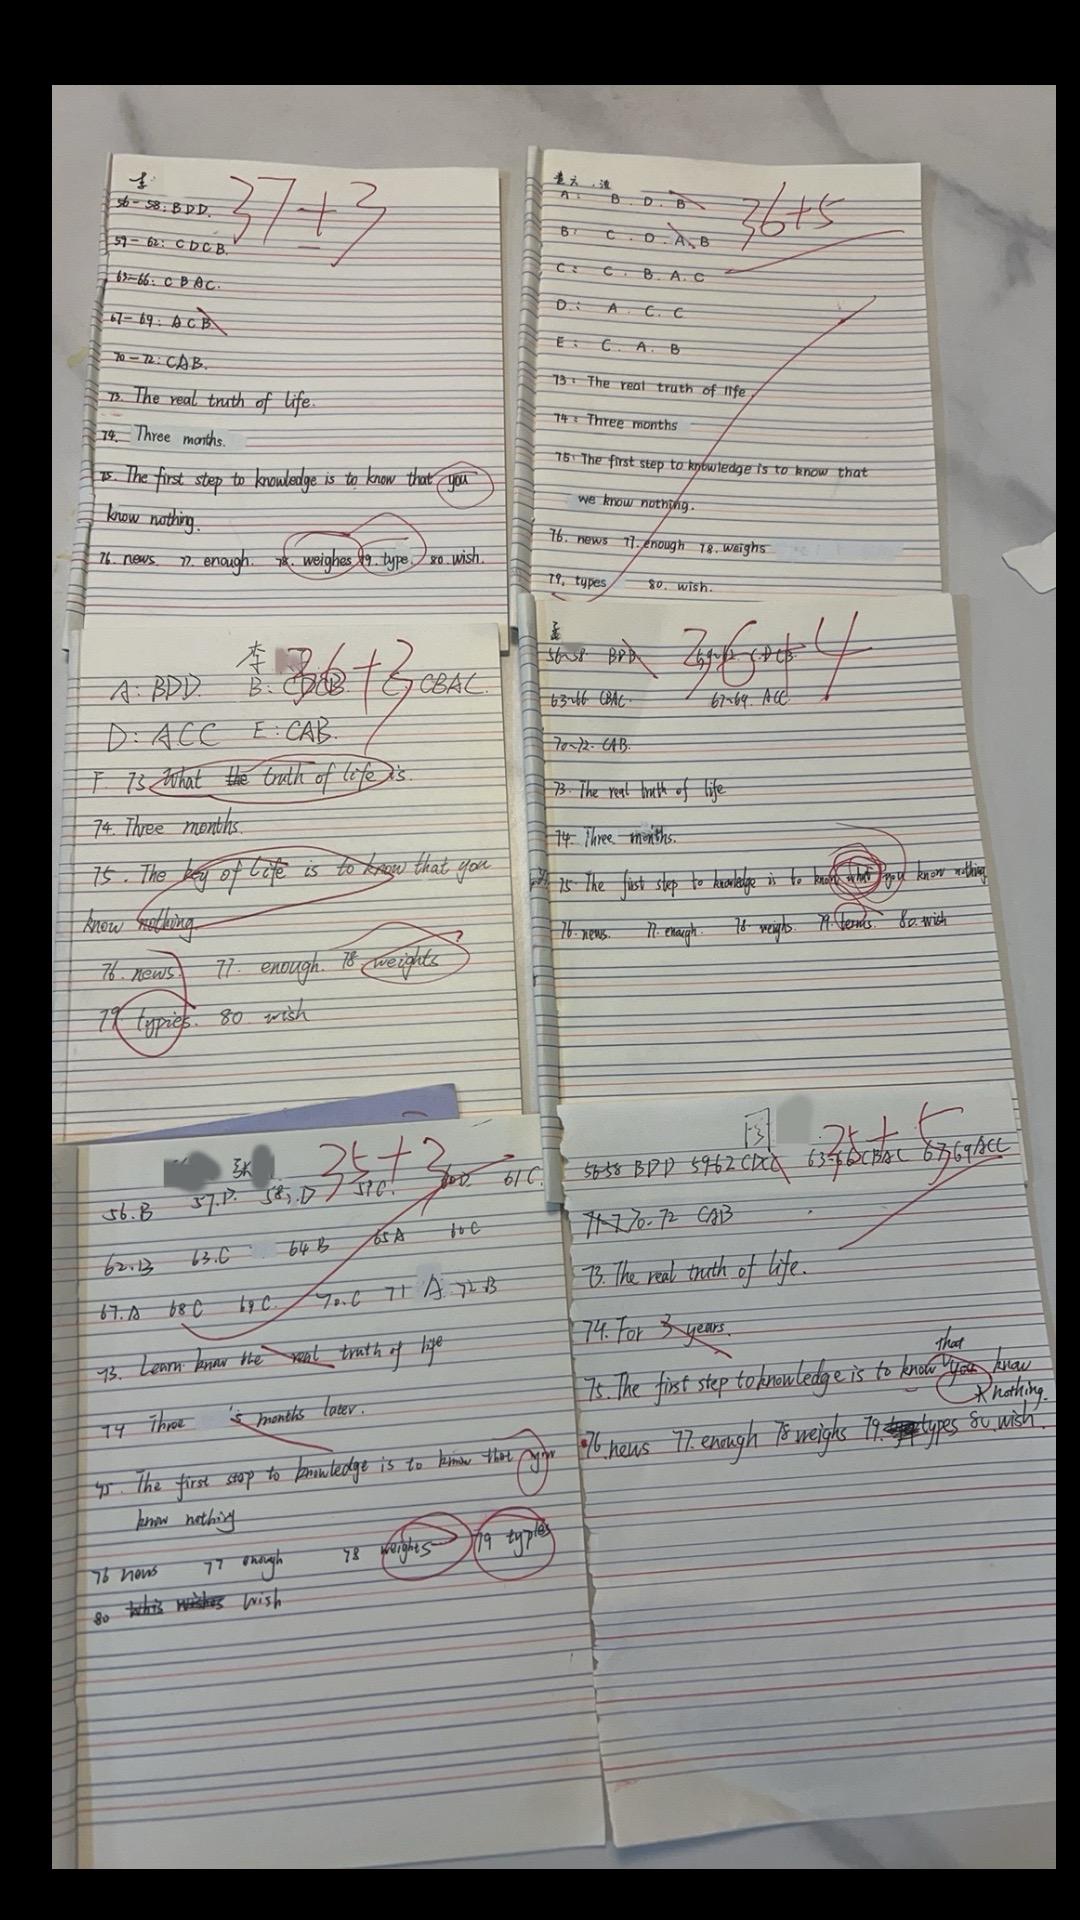 37+3
56-58: BDD.
59-62: CDCB.
63-66: CBAC.
67-69: ACB
70-72: CAB.
73. The real truth of life.
74. Three months.
75. The first step to knowledge is to know that you
know nothing.
76. news. 77. enough. 78. weighes 79. type. 80. wish.
36+5
A: B. D. B
B: C. D. A. B
C: C. B. A. C
D: A. C. C
E: C. A. B
73: The real truth of life.
74: Three months
75: The first step to knowledge is to know that
we know nothing.
76. news 77. enough 78. weighs
79. types 80. wish.
李 36+3
A: BDD. B: CDCB. C: CBAC.
D: ACC E: CAB.
F. 73. What the truth of life is.
74. Three months.
75. The key of life is to know that you
know nothing.
76. news. 77. enough. 78 weights
79 typies. 80 wish
孟 36+4
56~58 BDD 59~62 CDCB
63~66 CBAC. 67~69. ACC
70~72. CAB.
73. The real truth of life
74. Three months.
75. The first step to knowledge is to know what you know nothing
76. news. 77. enough. 78. weighs. 79. terms. 80. wish
张 35+3
56.B 57.D. 58.D 59C. 60D. 61C.
62.B 63.C 64B 65A 66C
67.A 68C 69C. 70.C 71 A 72B
73. Learn know the real truth of life
74 Three 's months later.
75. The first step to knowledge is to know that you
know nothing
76 news 77 enough 78 weights 79 typles
80 wish
35+5
56-58 BDD 59-62 CDCC 63-66 CBAC 67-69 ACC
70-72 CAB
73. The real truth of life.
74. For 3 years.
that
75. The first step to knowledge is to know you know
nothing.
76. news 77. enough 78 weighs 79. types 80. wish.